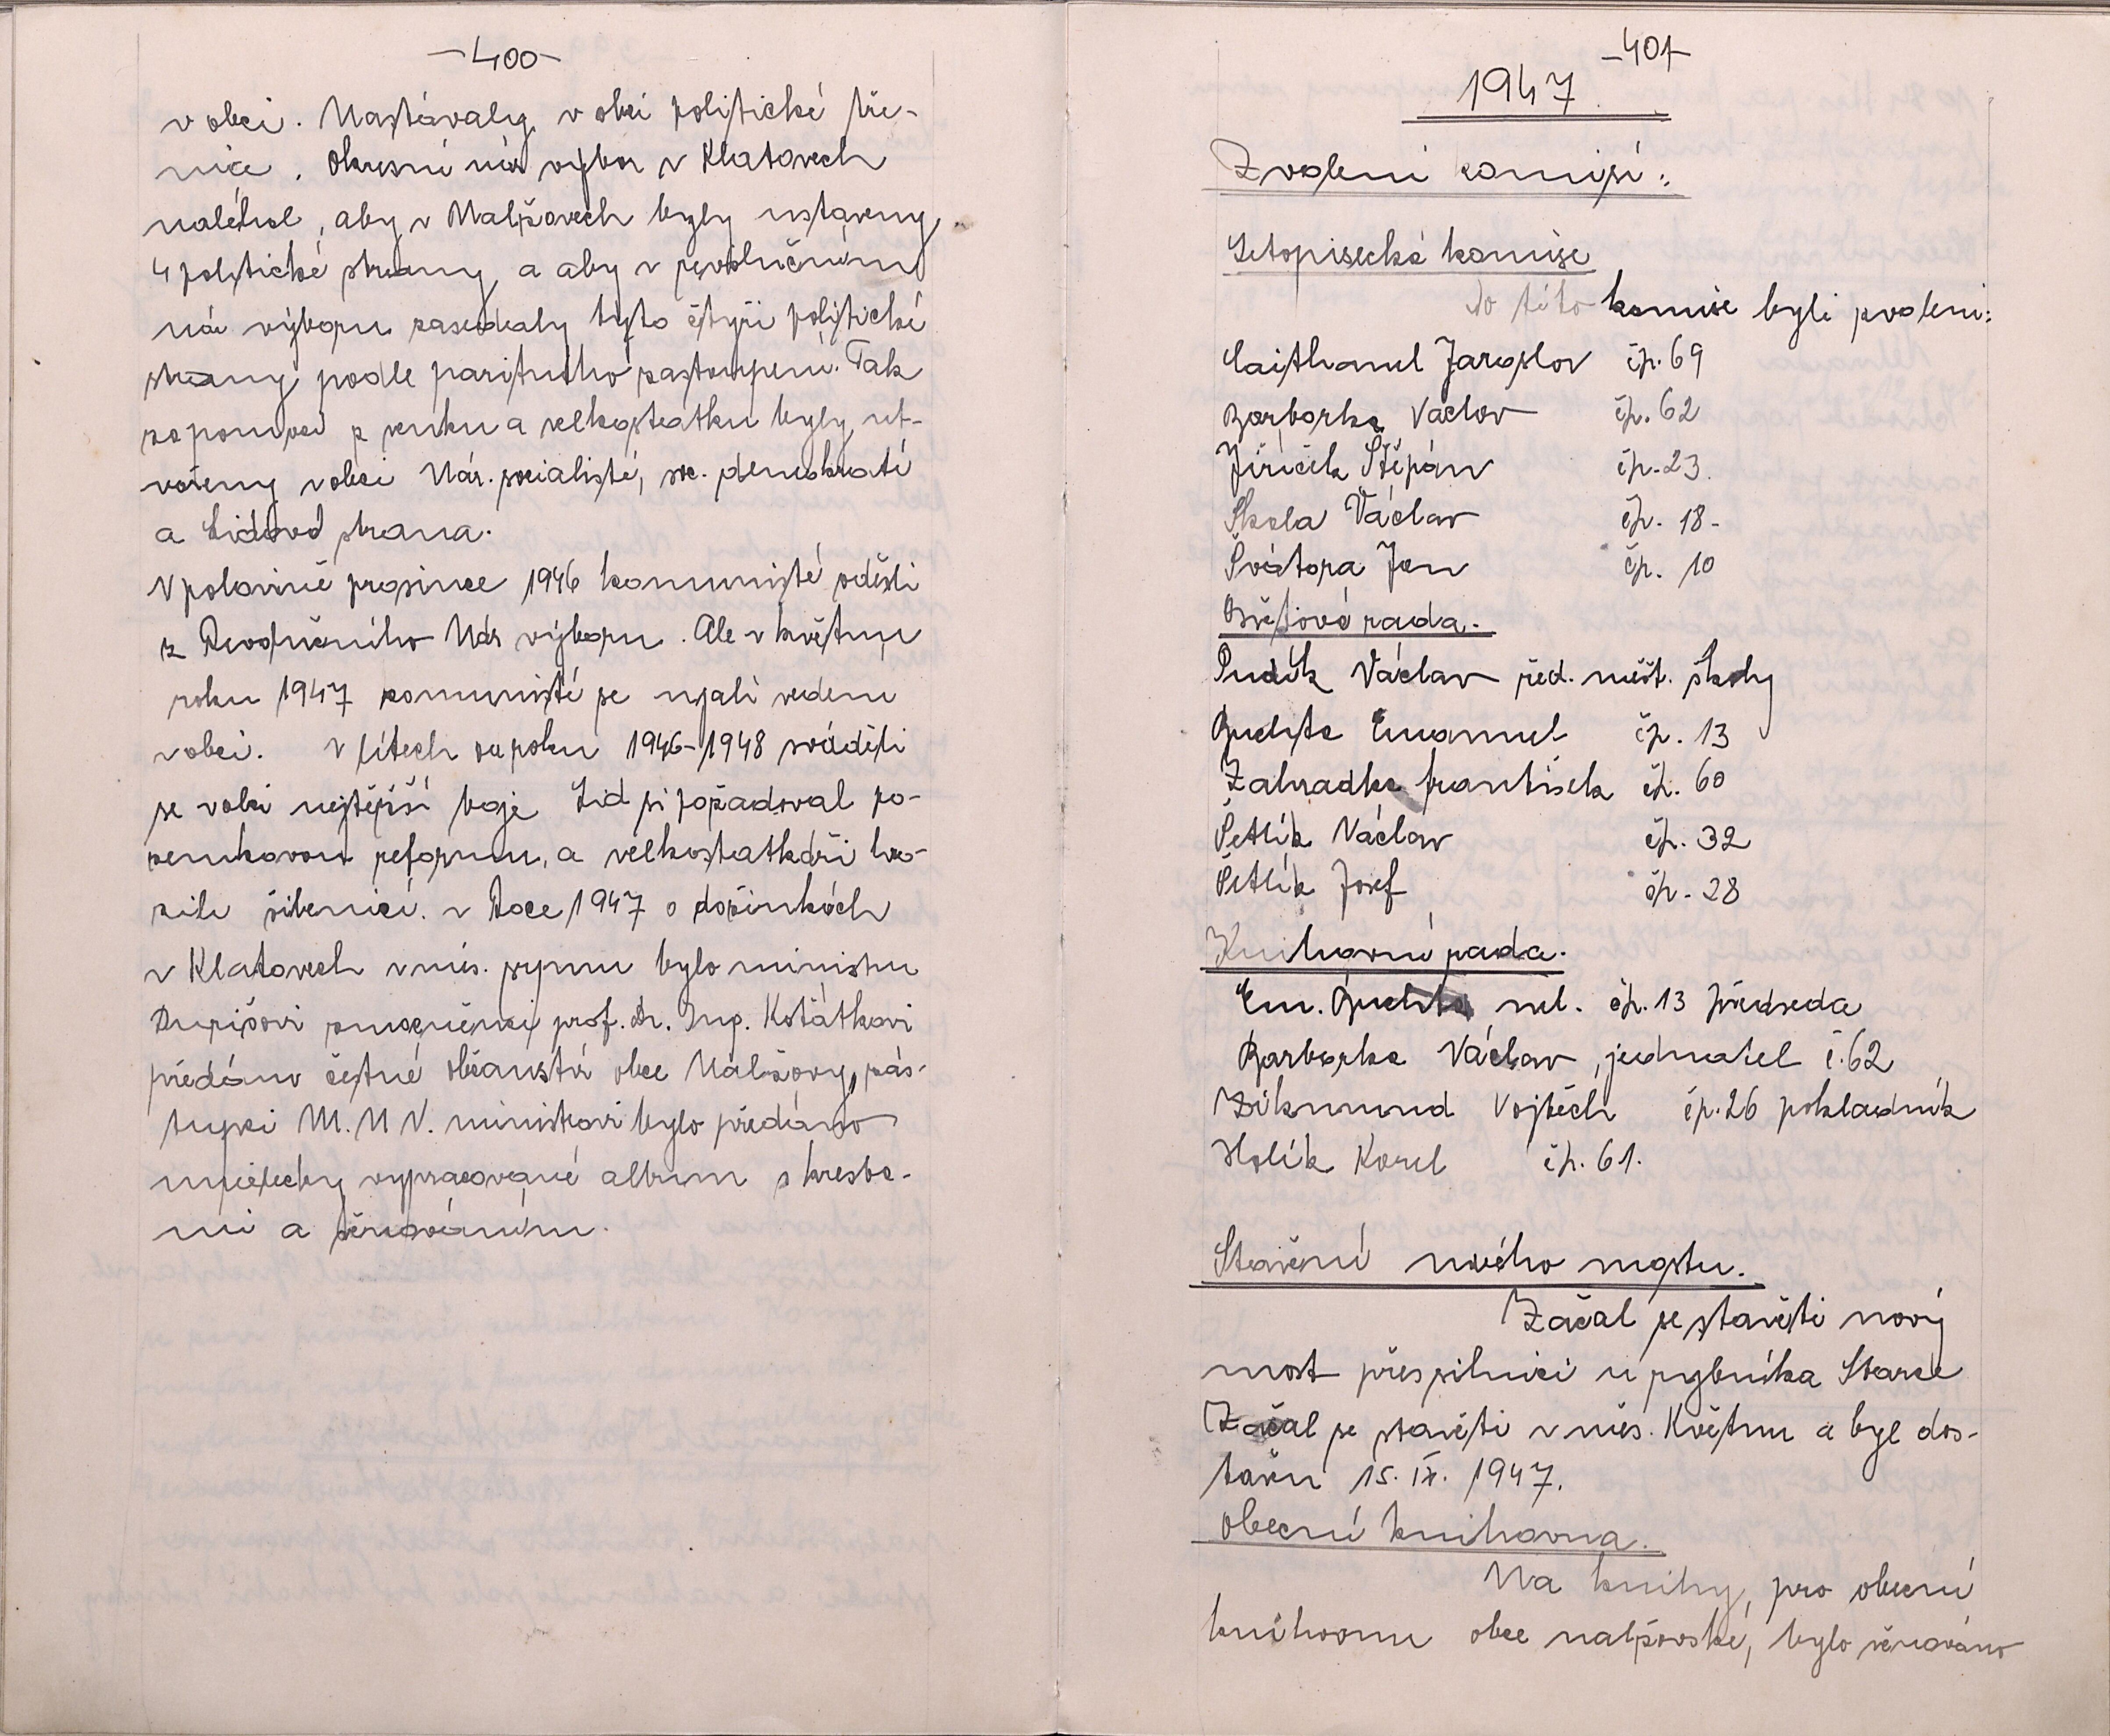 -400-
v obci. Nastávaly v obci politické tře-
nice. Okresní nár výbor v Klatovech
naléhal, aby v Nalžovech byly ustaveny
4 politické strany a aby v revolučním
nár výboru zasedaly tyto čtyři politické
strany podle paritního zastoupení. Tak
za pomoci z venku a velkostatku byly ut-
vořeny v obci Nár. socialisté, soc. demokraté
a Lidová strana.
V polovině prosince 1946 komunisté odešli
z Revolučního Nár výboru. Ale v květnu
roku 1947 komunisté se ujali vedení
v obci. V létech 1946-1948 sváděli
se v obci nejtěžší boje Lid si požadoval po-
zemkovou reformu, a velkostatkáři hro-
zili šibenicí. v Roce 1947 o dožinkách
v Klatovech v měs. srpnu bylo ministru
Ďurišovi zmocněnci prof. Dr. Ing. Koťátkovi
předáno čestné občanství obce Nalžovy, zás-
tupci M. N V. ministrovi bylo předáno
umělecky vypracované album s kresba-
mi a věnováním.
-401-
1947
Zvolení komisí:
Letopisecká komise
do této komise byli zvoleni:
Caithaml Jaroslav čp. 69
Barborka Václav čp. 62
Jiříček Štěpán čp. 23.
Skala Václav čp. 18-
Švátora Jan čp. 10
Osvětová rada.
Pudík Václav řed. měšt. školy
Buchta Emanuel čp. 13
Zahradka František čp. 60
Šetlík Václav čp. 32
Šetlík Josef čp. 28
Knihovní rada.
Em. Buchta rol. čp. 13 předseda
Barborka Václav, jednatel č. 62
Zikmund Vojtěch čp. 26 pokladník
Holík Karel čp. 61.
Stavění nového mostu.
Začal se stavěti nový
most přes silnici u rybníka Starce
Začal se stavěti v měs. Květnu a byl dos-
tavěn 15. IX. 1947.
Obecní knihovna.
Na knihy, pro obecní
knihovnu obce nalžovské, bylo věnováno